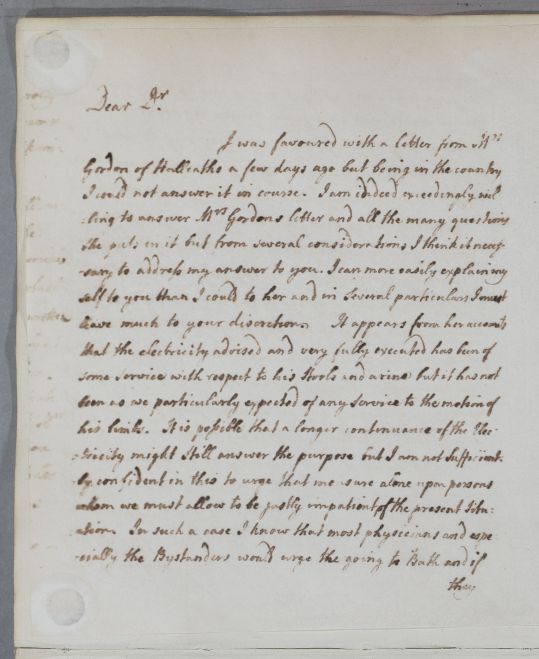 Dear Dr.
I was favoured with a letter from Mrs
Gordon of Hallcaths a few days ago but being in the country
I could not answer it in course. I am indeed exceedingly wil
-ling to answer Mrs Gordons letter and all the many questions
she puts in it but from several considerations I think it neces
-sary to address my answer to you. I can more easily explain my
self to you than I could to her and in several particulars I must
leave much to your discretion. It appears from her accounts
that the electricity advised and very fully executed has been of
some service with respect to his stools and urine but it has not
been as we particularly expected of any service to the motion of
his limbs. It is possible that a longer continuance of the Elec
-tricity might still answer the purpose but I am not sufficient
-ly confident in this to urge that measure alone upon persons
whom we must allow to be justly impatient of the present situ:
-ation. In such a case I know that most physicians and espe
-cially the Bystanders would urge the going to Bath and if
they